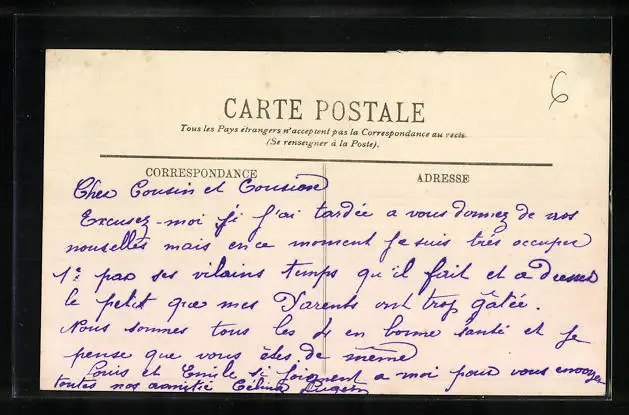 6
CARTE POSTALE
Tous les Pays étrangers n'acceptent pas la Correspondance au recto.
(Se renseigner à la Poste).
CORRESPONDANCE
ADRESSE
Cher Cousin et Cousine
Excusez-moi si j'ai tardée a vous donnez de nos
nouvelles mais en ce moment je suis très occuper
1º par ses vilains temps qu'il fait et a dresser
le petit que mes Parents ont trop gâtée.
Nous sommes tous les 4 en bonne santé et je
pense que vous êtes de même
Louis et Emile se joignent a moi pour vous envoyez
toutes nos amitié Célina